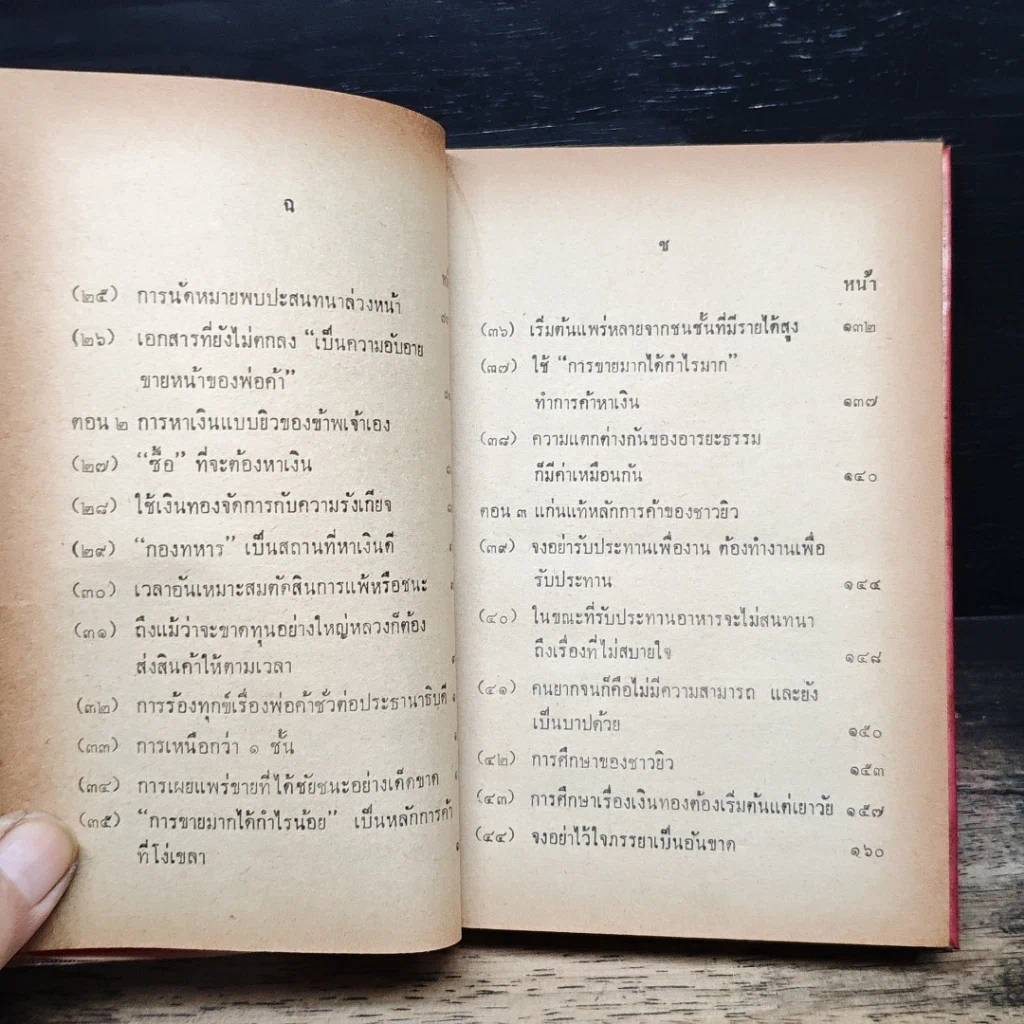 ฉ
(๒๕) การนัดหมายพบปะสนทนาล่วงหน้า
(๒๖) เอกสารที่ยังไม่ตกลง “เป็นความอับอาย
ขายหน้าของพ่อค้า”
ตอน ๒ การหาเงินแบบยิวของข้าพเจ้าเอง
(๒๗) “ซื้อ” ที่จะต้องหาเงิน
(๒๘) ใช้เงินทองจัดการกับความรังเกียจ
(๒๙) “กองทหาร” เป็นสถานที่หาเงินดี
(๓๐) เวลาอันเหมาะสมตัดสินการแพ้หรือชนะ
(๓๑) ถึงแม้ว่าจะขาดทุนอย่างใหญ่หลวงก็ต้อง
ส่งสินค้าให้ตามเวลา
(๓๒) การร้องทุกข์เรื่องพ่อค้าชั่วต่อประธานาธิบดี
(๓๓) การเหนือกว่า ๑ ชั้น
(๓๔) การเผยแพร่ขายที่ได้ชัยชนะอย่างเด็ดขาด
(๓๕) “การขายมากได้กำไรน้อย” เป็นหลักการค้า
ที่โง่เขลา
ช
หน้า
(๓๖) เริ่มต้นแพร่หลายจากชนชั้นที่มีรายได้สูง ๑๓๒
(๓๗) ใช้ “การขายมากได้กำไรมาก”
ทำการค้าหาเงิน ๑๓๗
(๓๘) ความแตกต่างกันของอารยะธรรม
ก็มีค่าเหมือนกัน ๑๔๐
ตอน ๓ แก่นแท้หลักการค้าของชาวยิว
(๓๙) จงอย่ารับประทานเพื่องาน ต้องทำงานเพื่อ
รับประทาน ๑๔๔
(๔๐) ในขณะที่รับประทานอาหารจะไม่สนทนา
ถึงเรื่องที่ไม่สบายใจ ๑๔๘
(๔๑) คนยากจนก็คือไม่มีความสามารถ และยัง
เป็นบาปด้วย ๑๕๐
(๔๒) การศึกษาของชาวยิว ๑๕๓
(๔๓) การศึกษาเรื่องเงินทองต้องเริ่มต้นแต่เยาวัย ๑๕๗
(๔๔) จงอย่าไว้ใจภรรยาเป็นอันขาด ๑๖๐